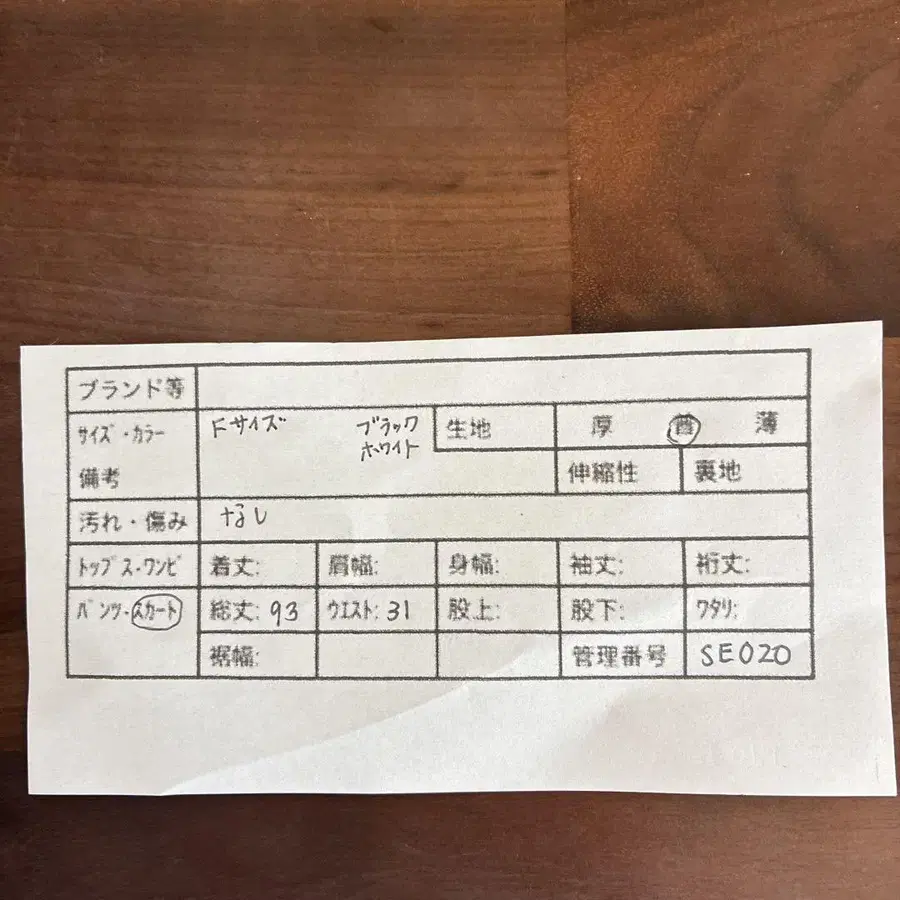 ブランド等
サイズ・カラー Fサイズ ブラック 生地 厚 普 薄
ホワイト
備考 伸縮性 裏地
汚れ・傷み なし
トップス・ワンピ 着丈: 肩幅: 身幅: 袖丈: 裄丈:
パンツ・スカート 総丈: 93 ウエスト: 31 股上: 股下: ワタリ:
裾幅: 管理番号 SE020